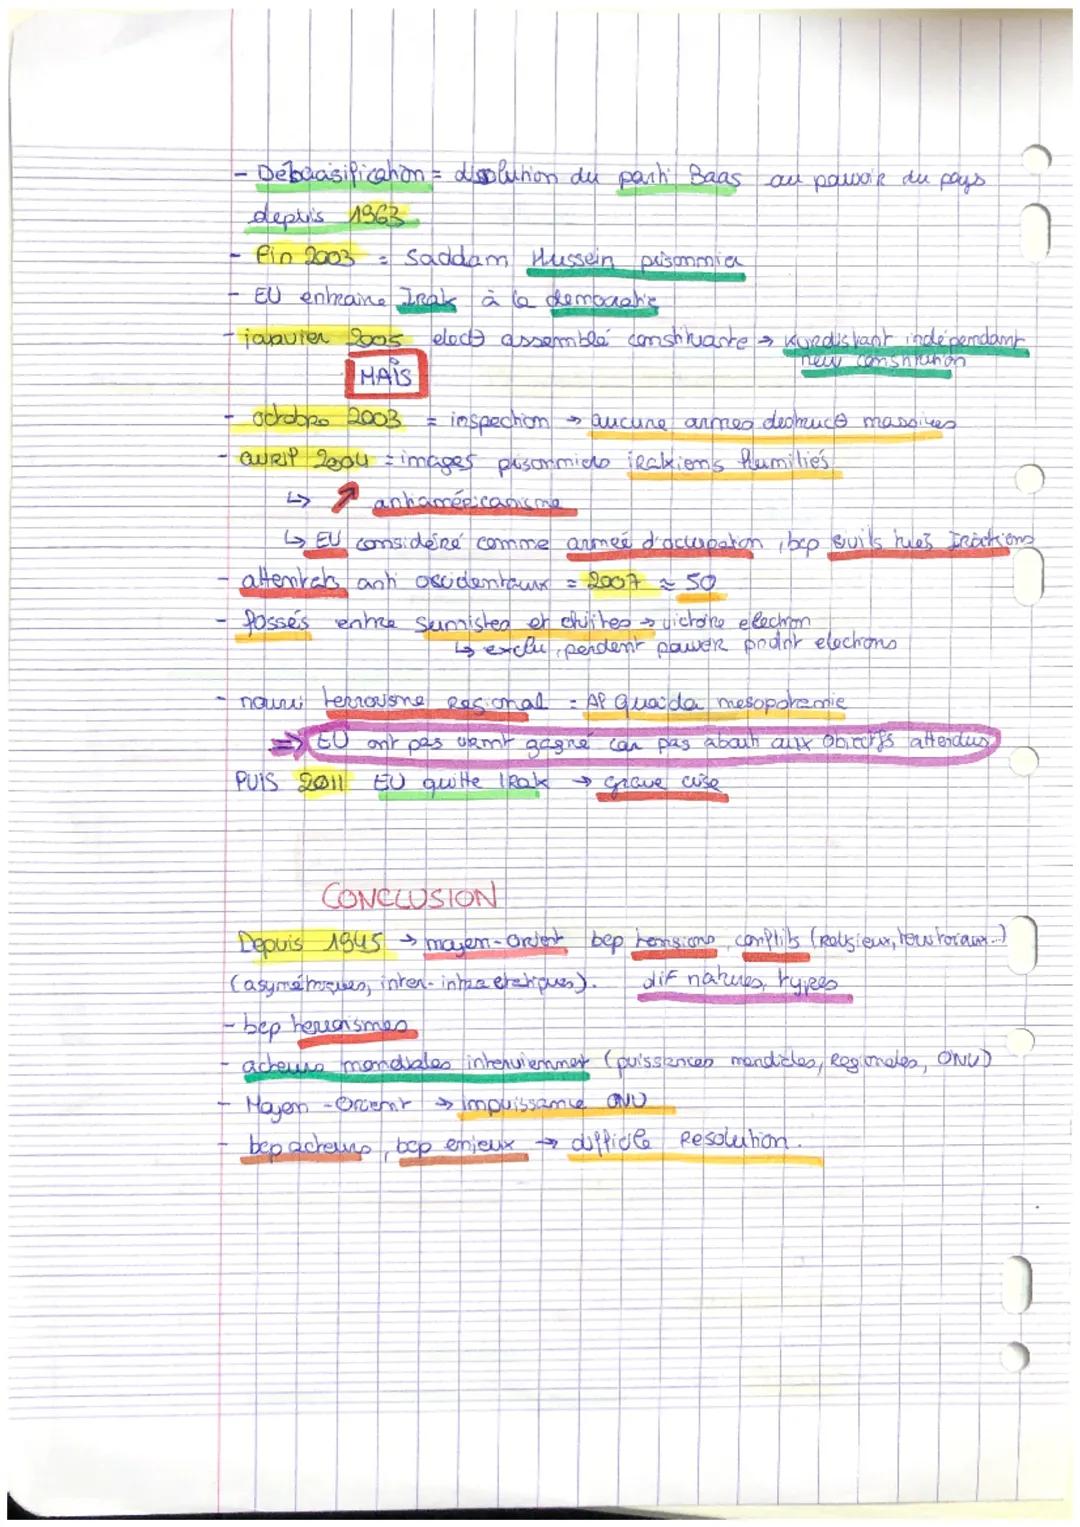 - Débaasification = dissolution du parti Baas au pouvoir du pays
depuis 1963
- fin 2003 = Saddam Hussein prisonnier
- EU entraine Irak à la démocratie
- janvier 2005 elect° assemblé constituante → Kurdistant indépendant
new constitution
MAIS
- octobre 2003 = inspection → aucune armes destruct° massives
- avril 2004 = images prisonniers irakiens humiliés
↳ ↗ antiaméricanisme
↳ EU considéré comme armée d'occupation, bcp civils tués Irakiens
- attentats anti occidentaux = 2007 ≈ 50
- fossés entre sunnistes et chiites → victoire election
↳ exclu, perdent pouvoir pndnt elections
- nourri terrorisme regional = Al Quaïda mesopotamie
⇒ EU ont pas vrmt gagné car pas abouti aux objectifs attendus
PUIS 2011 EU quitte Irak → grave crise
CONCLUSION
Depuis 1945 → moyen-orient bcp tensions, conflits (religieux, territoriaux...)
(asymétriques, inter-intra étatiques). dif natures, types
- bcp terrorismes
- acteurs mondiales interviennet (puissances mondiales, Regionales, ONU)
- Moyen-Orient → impuissance ONU
- bcp acteurs, bcp enjeux → difficile Resolution.